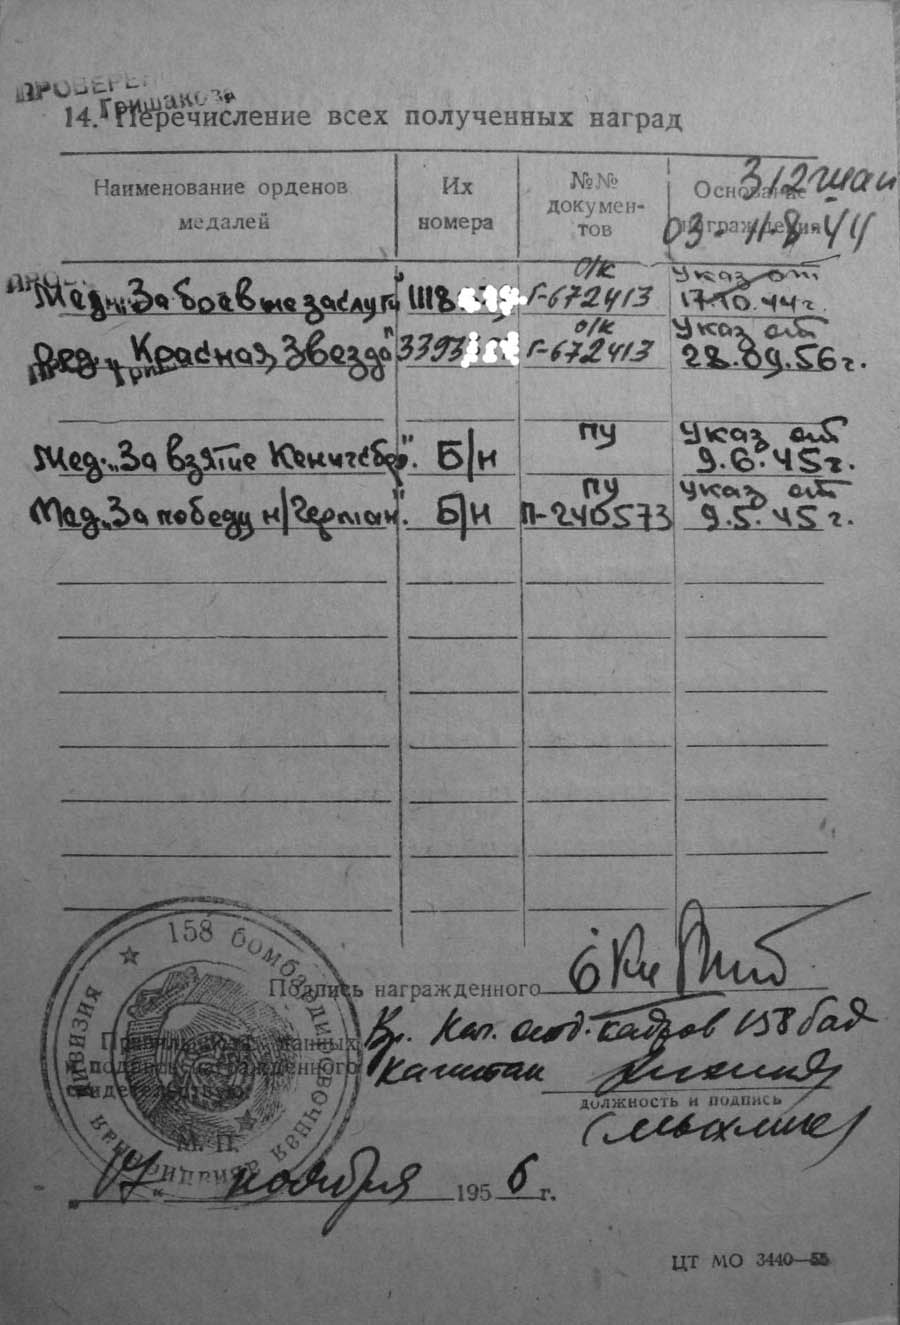 ПРОВЕРЕН
Гришакова
14. Перечисление всех полученных наград
Наименование орденов медалей
Их номера
№№ докумен-тов
Основание награждения
312 шап
03-11-8-44
Мед. „За боевые заслуги" 1118 о/к Г-672413 Указ от 17.10.44г.
Орд. „Красная Звезда" 3393 о/к Г-672413 Указ от 28.09.56г.
Мед. „За взятие Кенигсбер". Б/н ПУ Указ от 9.6.45г.
Мед. „За победу н/Герман". Б/н ПУ П-240573 Указ от 9.5.45г.
158 бомбардировочная авиационная дивизия
Подпись награжденного
Правильность данных
и подпись награжденного
свидетельствую
Вр. Нач. отд. кадров 158 бад
Капитан
должность и подпись
М. П.
ноября 1956 г.
ЦТ МО 3440—55